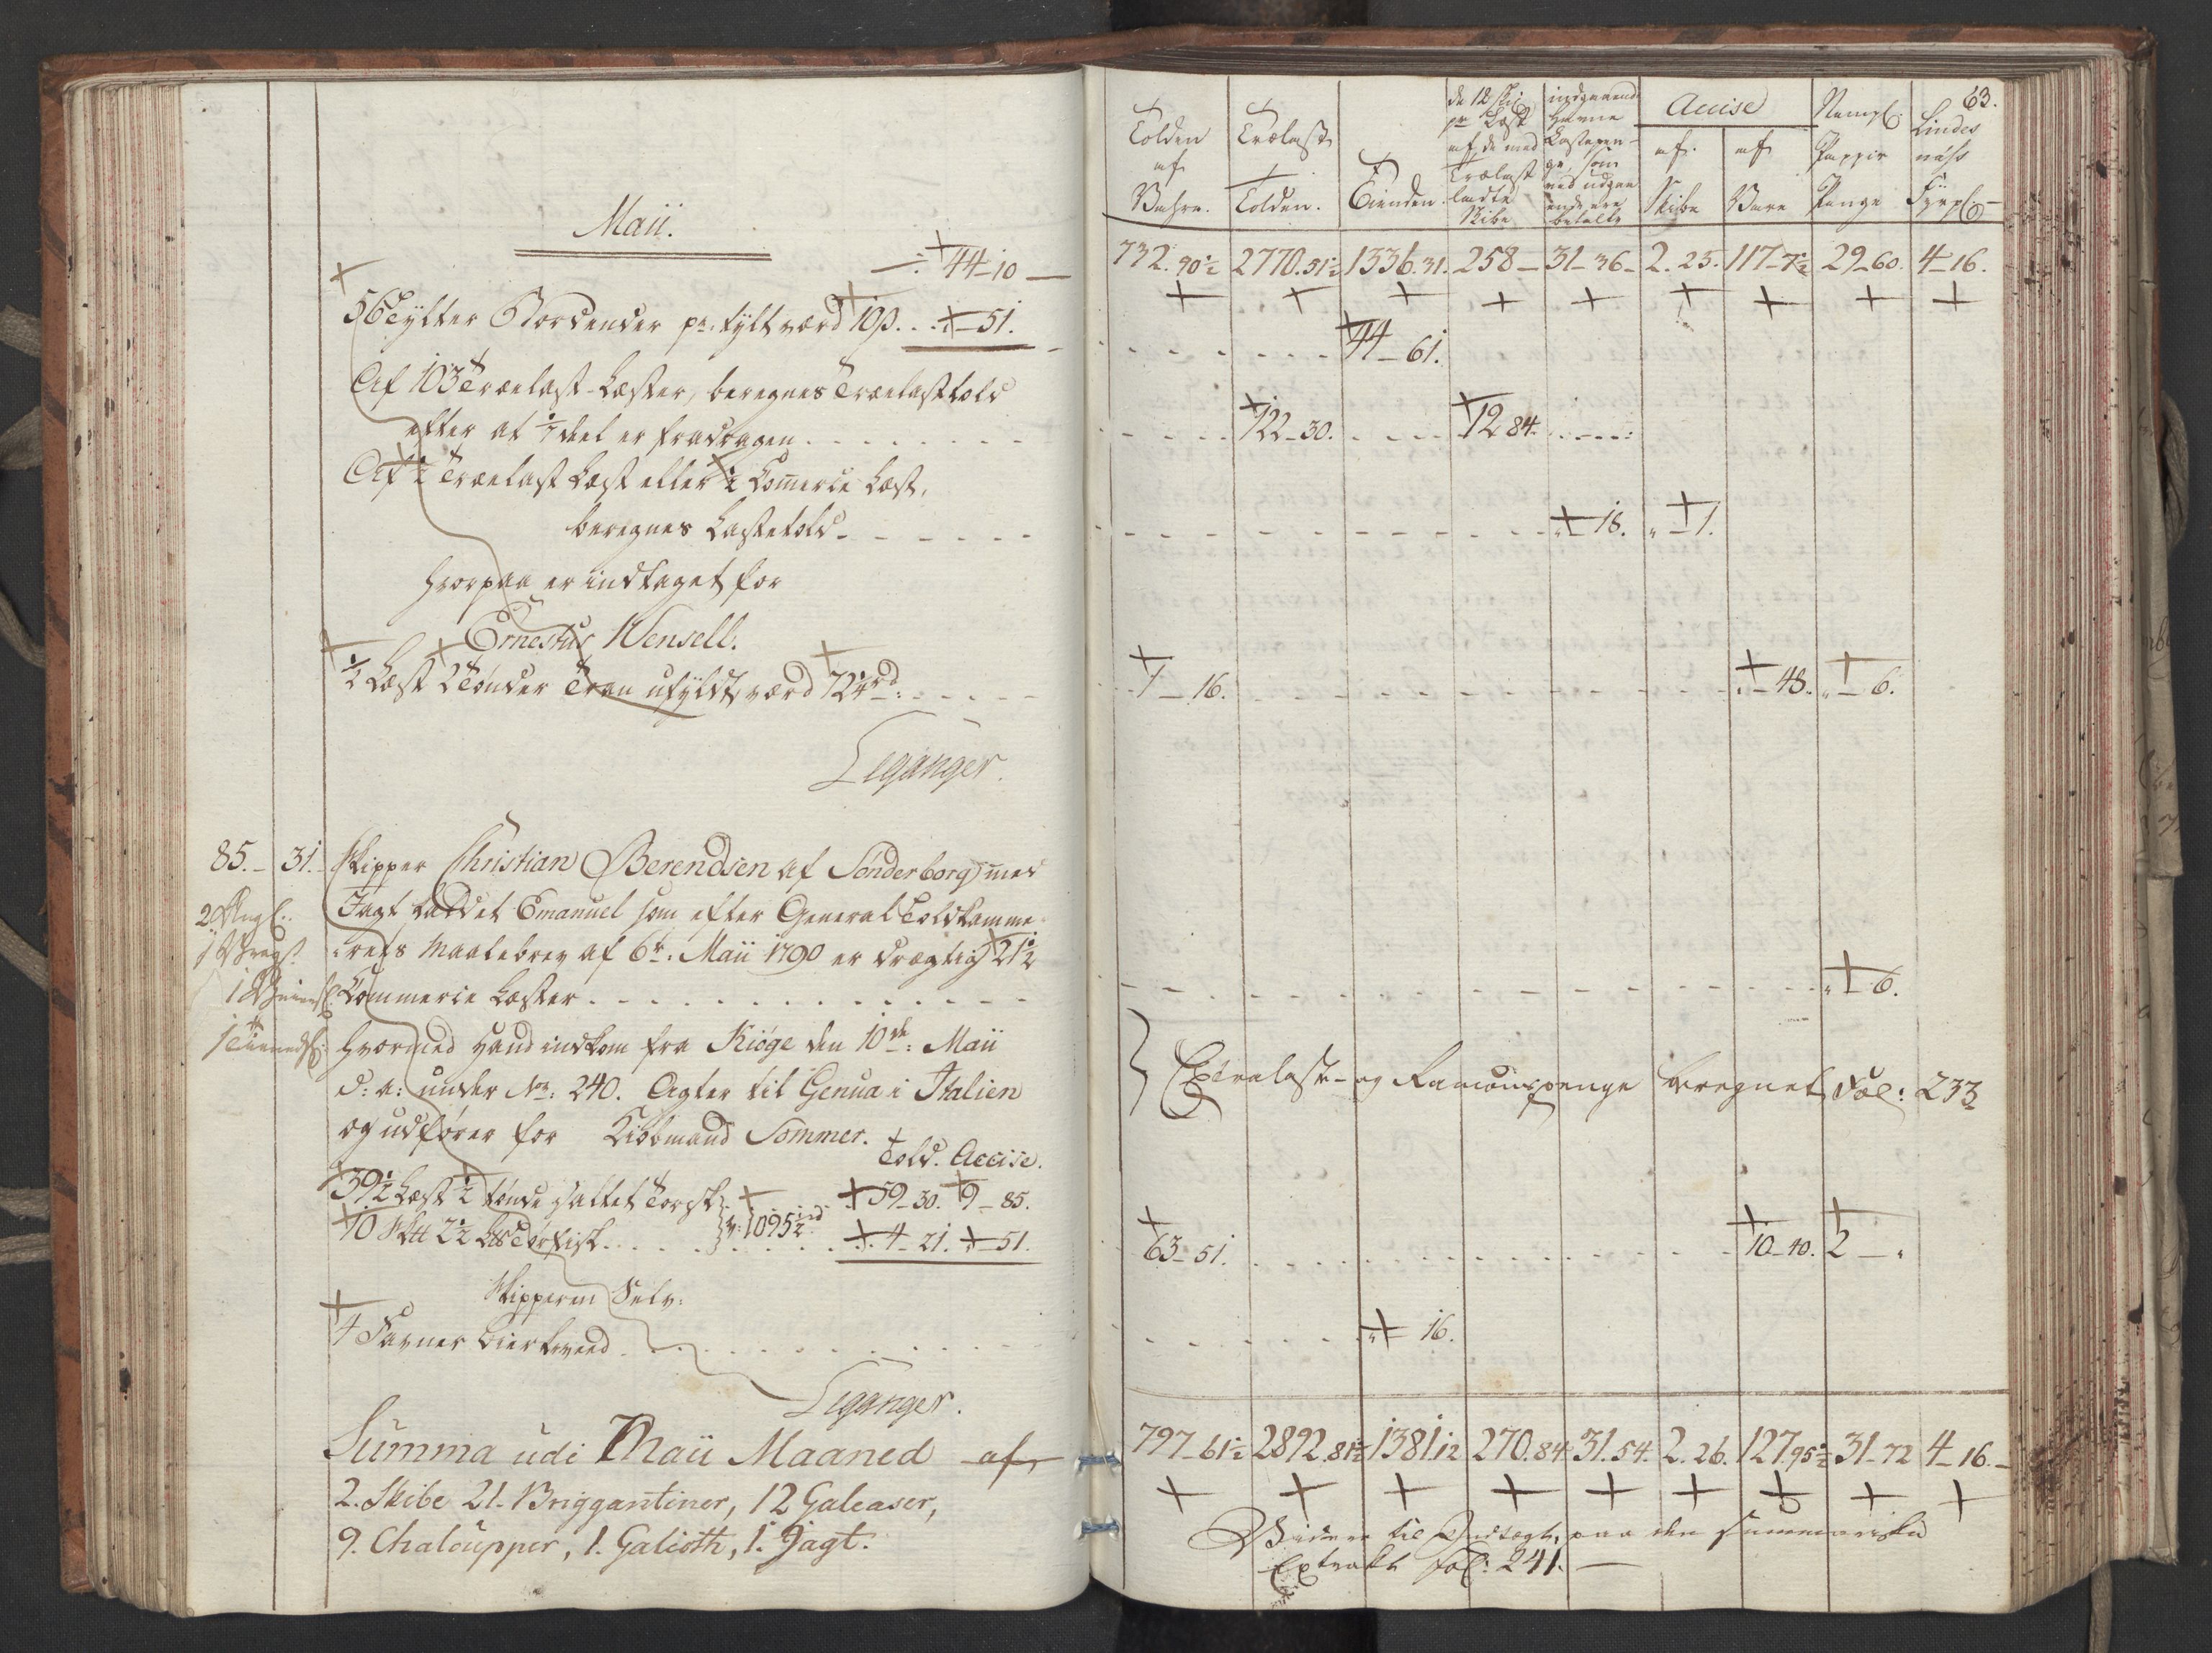 Maii.
44-10
56 Tylter Bordender pr. tylt værd 10ß. . . - 51.
Af 103 Trælast-Læster, beregnes Trælasttold
efter at 1/7 deel er fradragen
Af 1/2 Trælast Læst eller 1/2 Com̄ercie Læst,
beregnes Lastetold
hvorpaa er indtaget for
Ernestus Wensell.
1/2 Læst 2 Tønder Tran ufyldt, værd 72 1/4 rd:
Leganger.
85. - 31. Skipper Christian Berendsen af Sønderborg, med
Jagt kaldet Emanuel som efter General Toldkamme
-rets Maalebrev af 6te: Maii 1790 er drægtig 21 1/2
Commercie Læster
hvormed Hand indkom fra Kiøge den 10de: Maii
d: a: under No: 240. Agter til Genua i Italien
og udfører for Kiøbmand Sommer.
Told. Accise.
39 1/2 Læst 1/2 tønde saltet Torsk 59-30. 9-85.
v: 1095 1/2 rd
10 Sk℔ 2 1/2 L℔ Tørfisk 4-21. - 51.
Skipperen Selv:
4 Favner Birkeveed
Leganger.
Summa udi Maii Maaned af
2. Skibe 21. Briggantiner, 12 Galeaser,
9. Chaloupper, 1. Galioth, 1. Jagt.
63.
Tolden af Vahre.
Trælast Tolden.
Tienden.
de 12 ski pr Læst af de med Trælast ladte Skibe
indgaaend Havne Lastepen-ge, som ved udgaa ende ere betalte
Accise
af Skibe
af Vare
Stempl: Pappir Penge
Lindes næss Fyrp
732. 90 1/2 2770. 51 1/2 1336. 31. 258 - 31-36 - 2. 25. 117-7 1/2 29-60. 4-16.
44-61.
122-30. 12 84.
- 18. " - 1.
1-16. - 48. " - 6.
" - 6.
Extralast- og Rancionspenge beregnet Fol: 233
63-51. 10-40. 2 - "
" - 16.
797-61 1/2 2892. 81 1/2 1381. 12 270. 84 31. 54. 2. 26. 127. 95 1/2 31-72 4-16.
Videre til Indtægt, paa den summariske
Extrakt fol: 241.